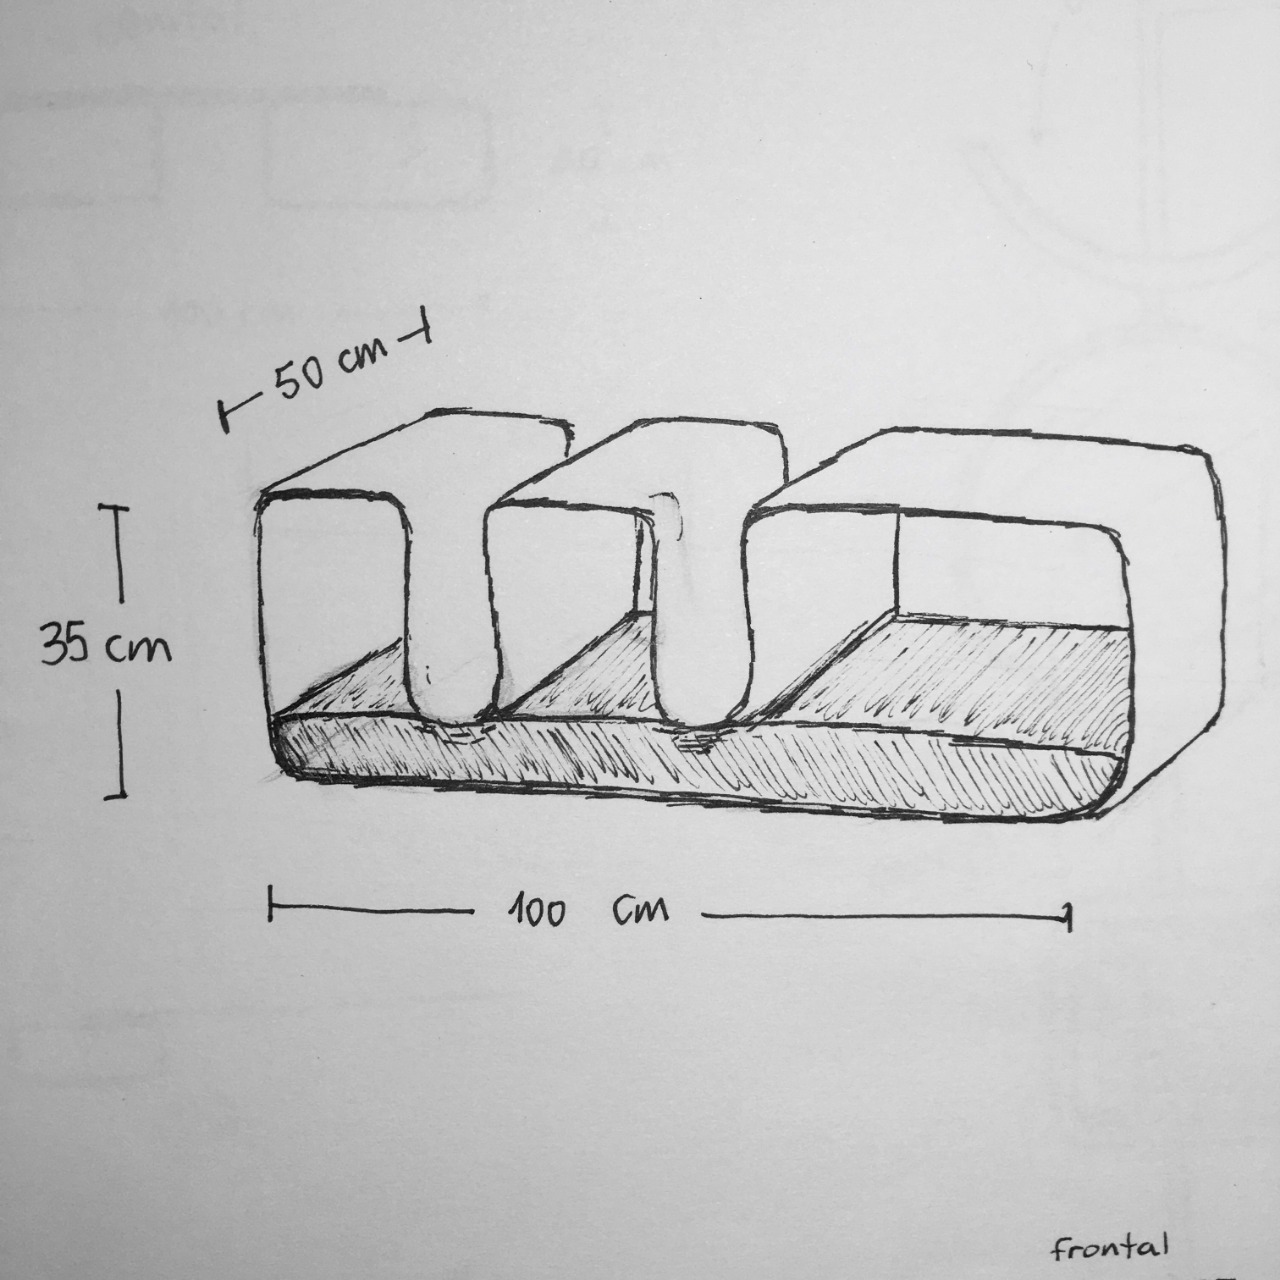 50 cm
35 cm
100 cm
frontal